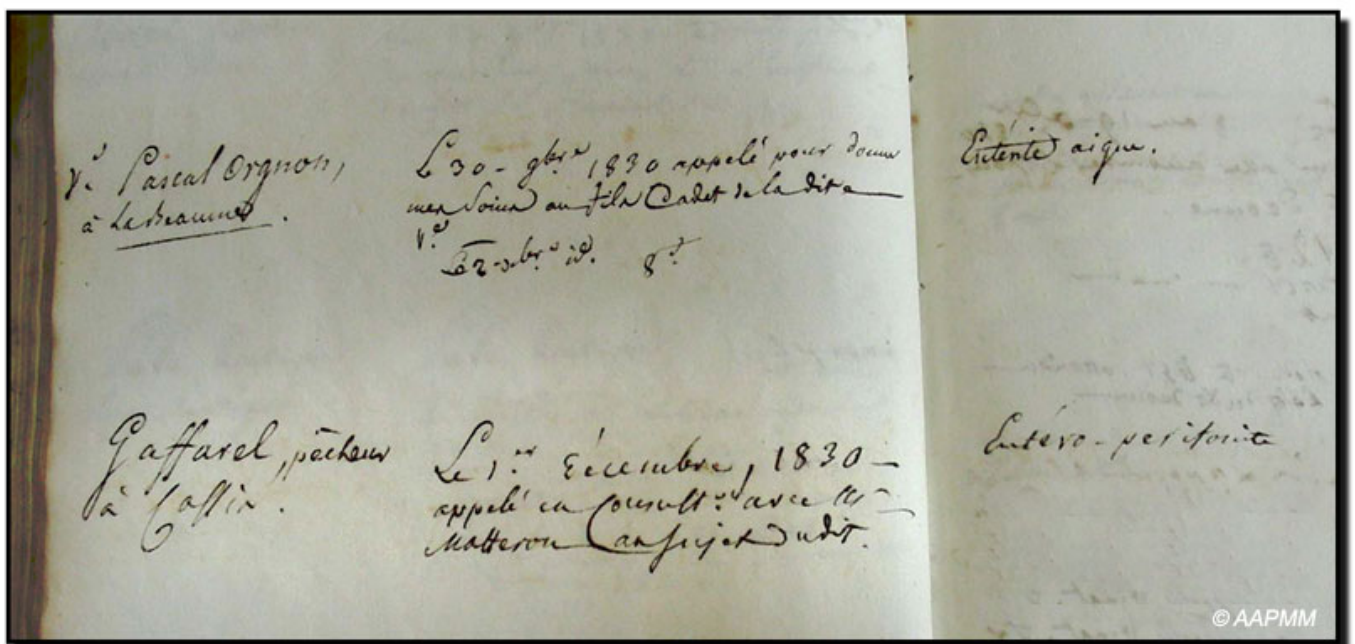 Ve Pascal Orgnon,
à La Beaume.
Le 30 - 9bre 1830 appelé pour donner
mes soins au fils Cadet de la dite
Ve
Le 2 - xbre id. 8
Entérite aigue.
Gaffarel, pêcheur
à Cassis.
Le 1er Décembre, 1830 -
appelé en Consultn avec Mr
Matteron au sujet du dit.
Entéro-peritonite
© AAPMM